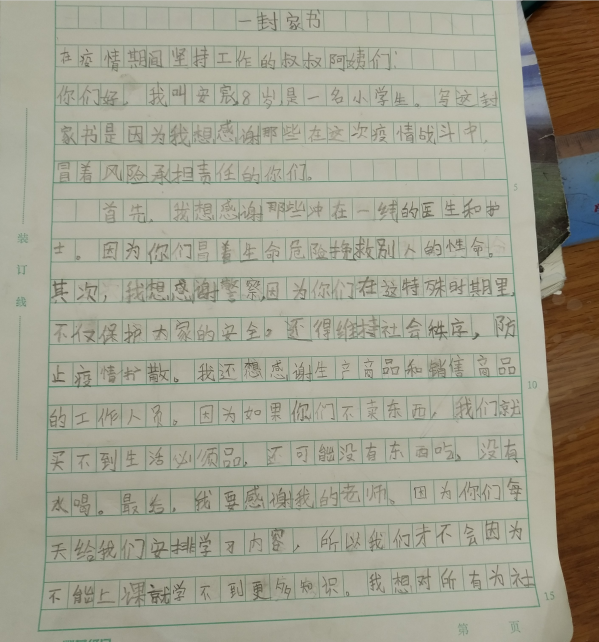 一封家书
在疫情期间坚持工作的叔叔阿姨们:
你们好。我叫安宸8岁是一名小学生。写这封
家书是因为我想感谢那些在这次疫情战斗中,
冒着风险承担责任的你们。
首先,我想感谢那些冲在一线的医生和护
士。因为你们冒着生命危险挽救别人的性命。
其次,我想感谢警察因为你们在这特殊时期里,
不仅保护大家的安全。还得维持社会秩序,防
止疫情扩散。我还想感谢生产商品和销售商品
的工作人员。因为如果你们不卖东西,我们就
买不到生活必须品,还可能没有东西吃,没有
水喝。最后,我要感谢我的老师。因为你们每
天给我们安排学习内容,所以我们才不会因为
不能上课就学不到更多知识。我想对所有为社
装订线
5
10
15
第 页